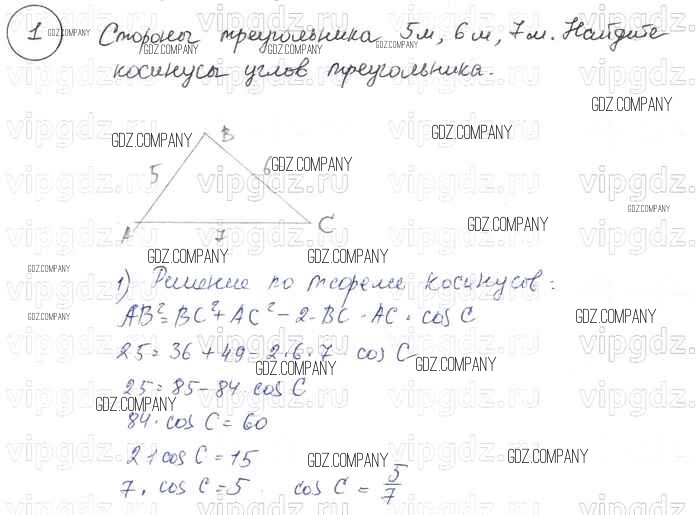 1 Стороны треугольника 5м, 6м, 7м. Найдите
косинусы углов треугольника.
B
5
6
A
7
C
1) Решение по теореме косинусов:
AB² = BC² + AC² - 2 · BC · AC · cos C
25 = 36 + 49 - 2·6·7 cos C
25 = 85 - 84 cos C
84 · cos C = 60
21 cos C = 15
7 · cos C = 5 cos C = 5/7
GDZ.COMPANY
vipgdz.ru